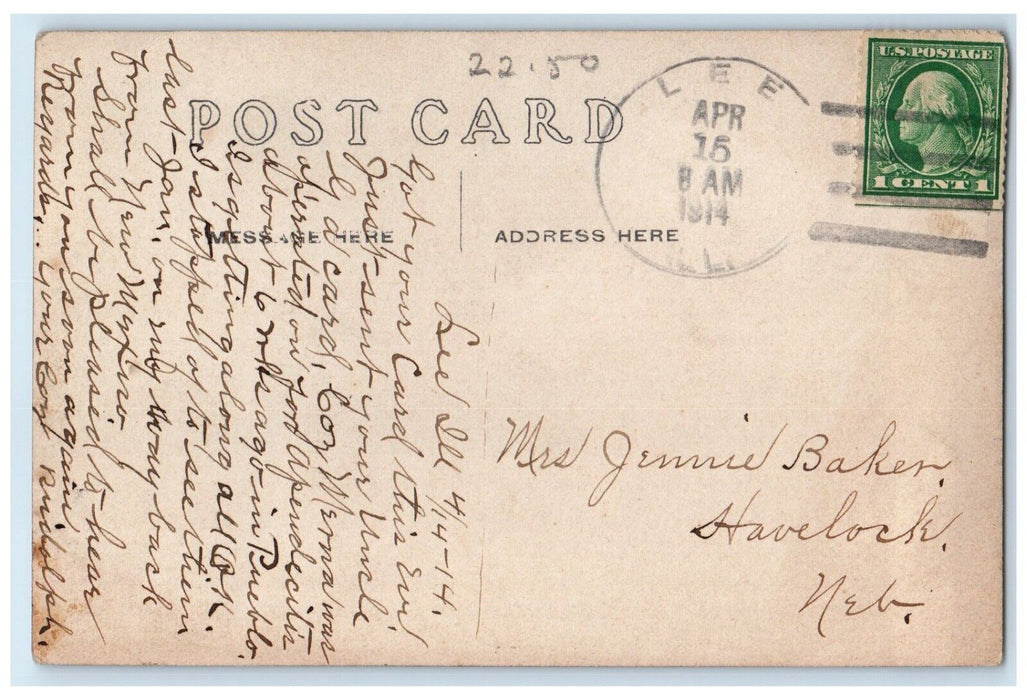 22.50
POST CARD
MESSAGE HERE
ADDRESS HERE
LEE
APR
15
8 AM
1914
ILL.
U.S. POSTAGE
1 CENT 1
Lee Ill 4/14-14.
Got your Card this Eve'
Just sent your Uncle
G a card, Coz Merna was
operated on for apendecitis
about 6 wks ago in Pueblo.
Is getting along all OK.
I stopped of to see them
last Jan. on my way back
from New Mexico.
Shall be pleased to hear
from you soon again
Regards,. your Coz Rudolph.
Mrs Jennie Baker,
Havelock,
Neb.